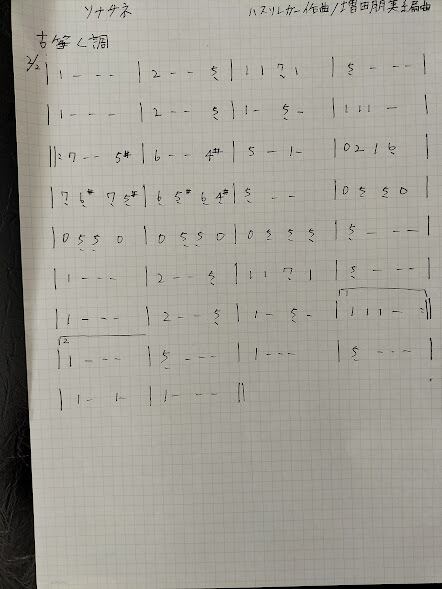 ソナチネ ハスリンガー作曲/増田朋美編曲
古箏く調
2/2 | 1 - - - | 2 - - 5̣ | 1 1 7̣ 1 | 5̣ - - - |
| 1 - - - | 2 - - 5̣ | 1 - 5̣ - | 1 1 1 - |
||: 7̣ - - 5# | 6 - - 4# | 5 - 1 - | 0 2 1 6̣ |
| 7̣ 6̣# 7̣ 5̣# | 6̣ 5̣# 6̣ 4̣# | 5̣ - - | 0 5̣ 5̣ 0 |
| 0 5̣ 5̣ 0 | 0 5̣ 5̣ 0 | 0 5̣ 5̣ 5̣ | 5̣ - - - |
| 1 - - - | 2 - - 5̣ | 1 1 7̣ 1 | 5̣ - - - |
| 1 - - - | 2 - - 5̣ | 1 - 5̣ - | 1. 1 1 1 - :||
| 2. 1 - - - | 5̣ - - - | 1 - - - | 5̣ - - - |
| 1 - 1 - | 1 - - - ||